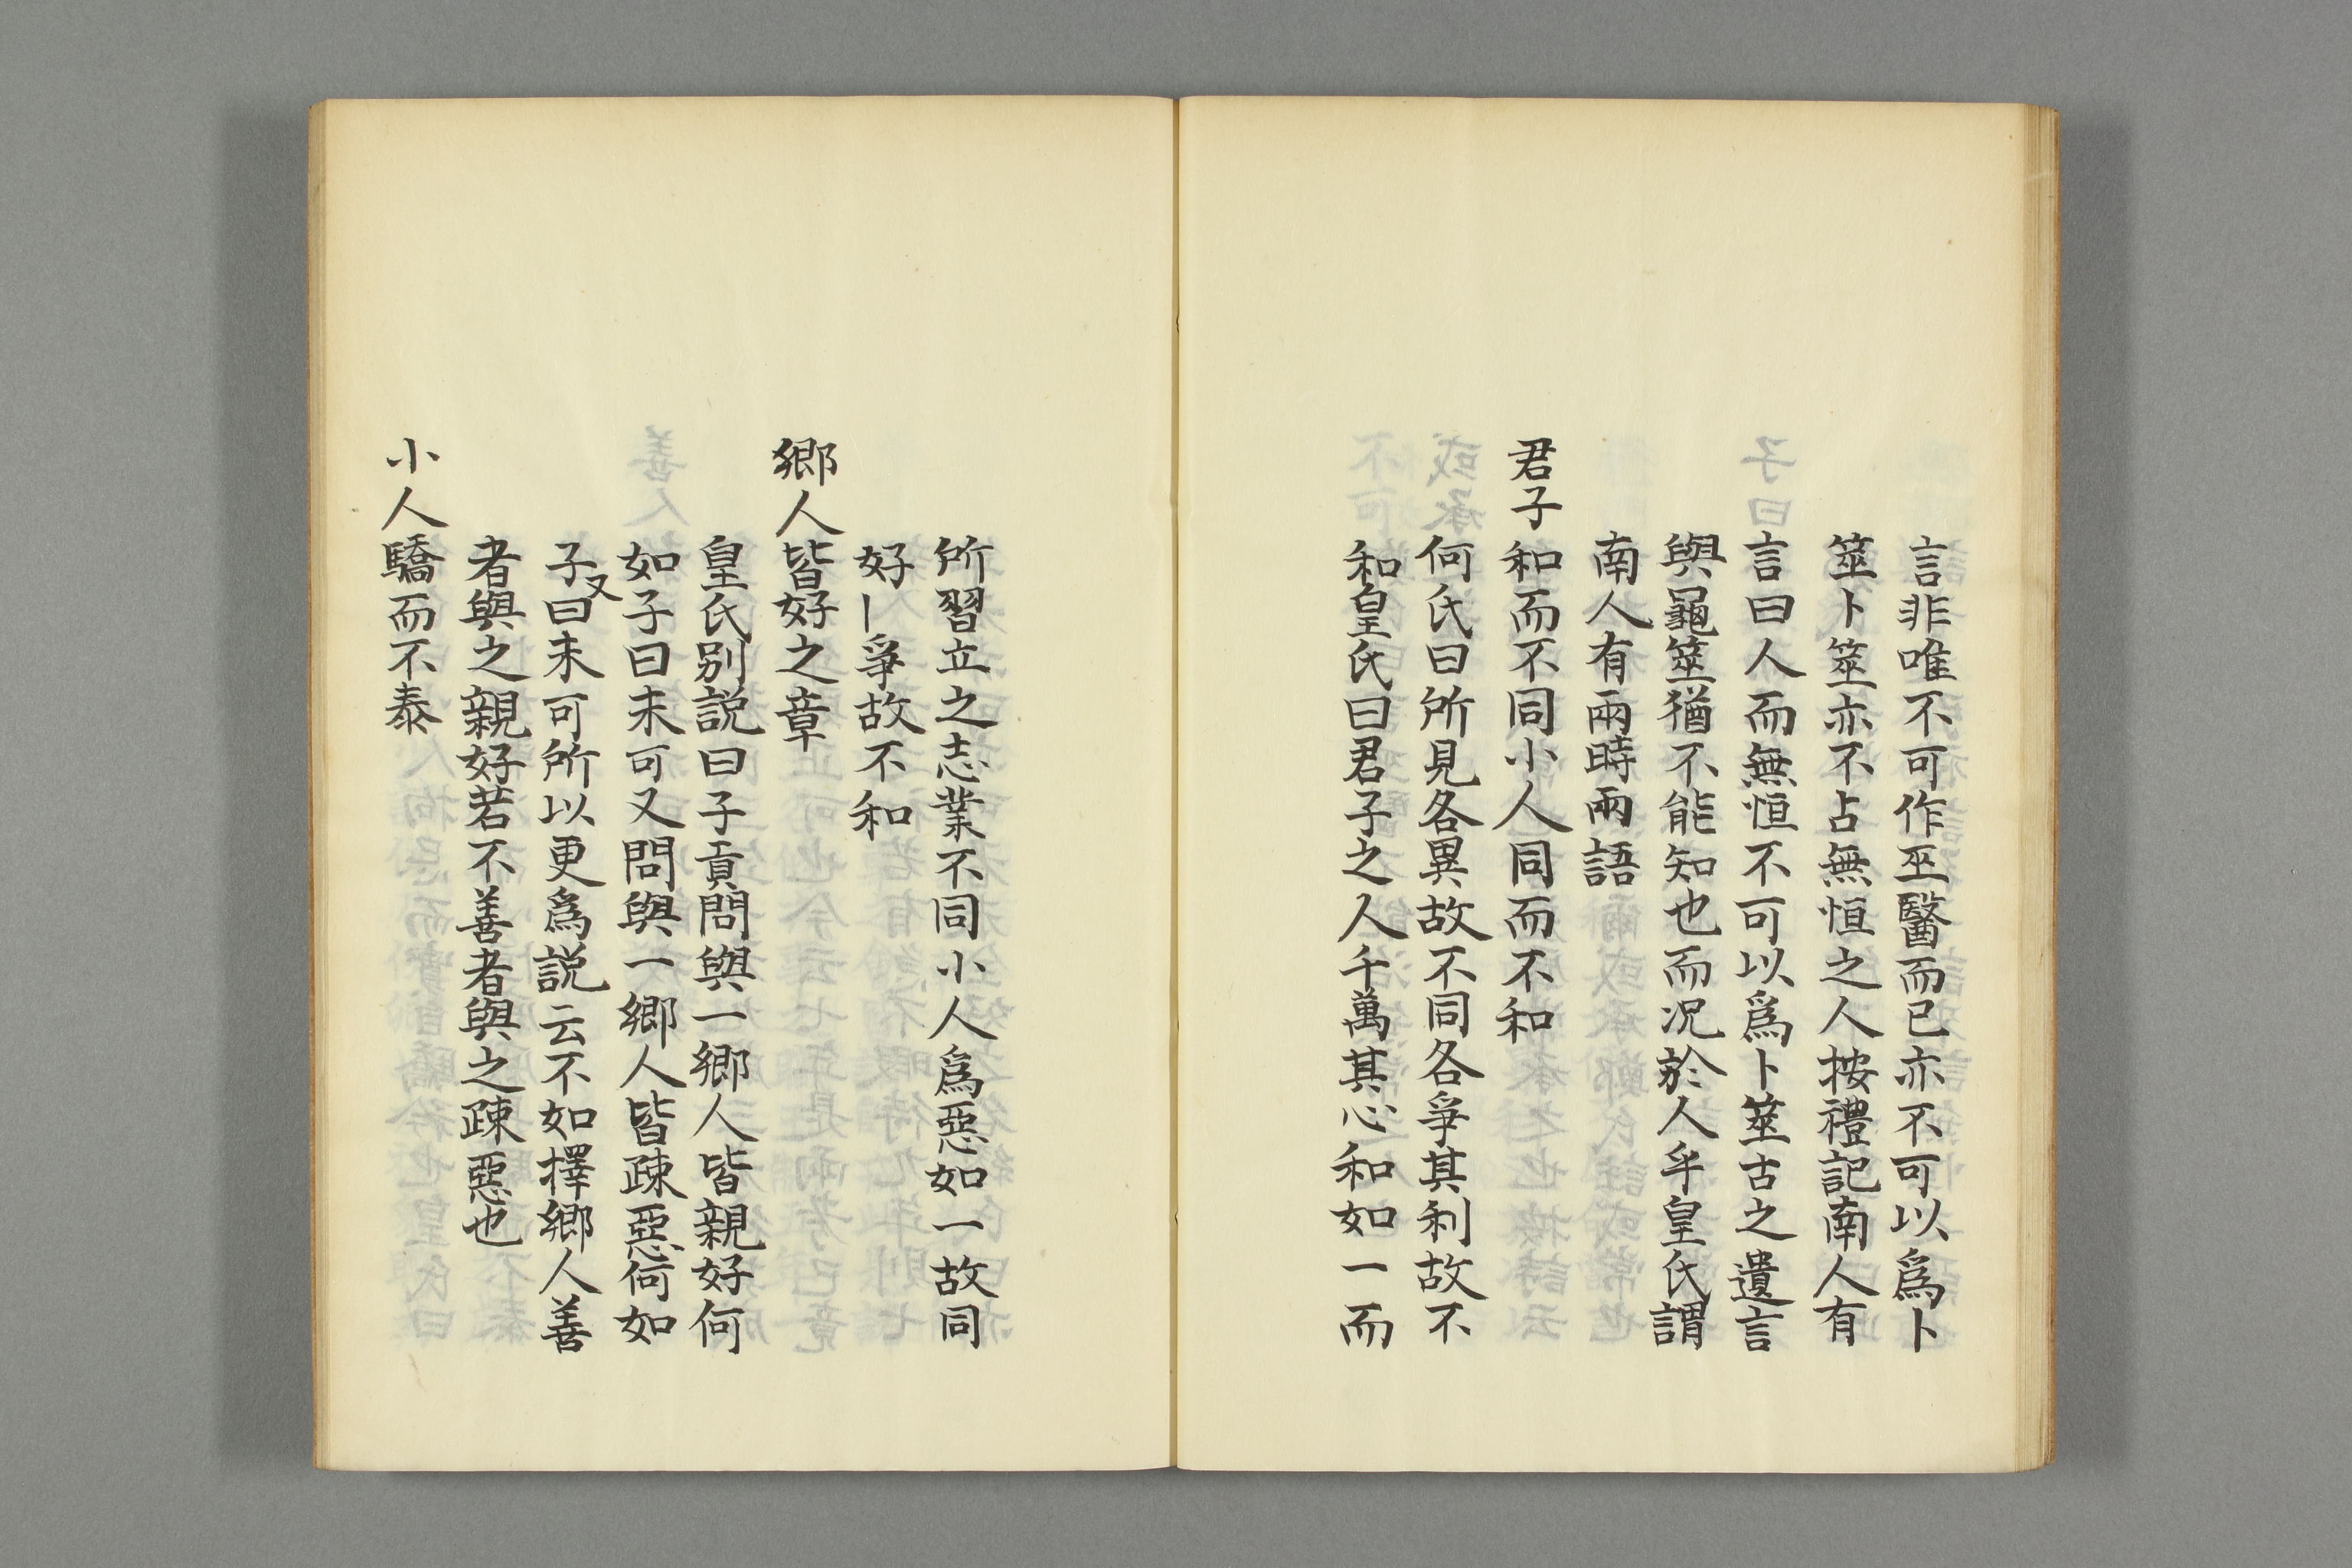 言非唯不可作巫醫而已亦不可以爲卜
筮卜筮亦不占無恒之人按禮記南人有
言曰人而無恒不可以爲卜筮古之遺言
與龜筮猶不能知也而况於人乎皇氏謂
南人有兩時兩語
君子和而不同小人同而不和
何氏曰所見各異故不同各爭其利故不
和皇氏曰君子之人千萬其心和如一而
所習立之志業不同小人爲惡如一故同
好〡爭故不和
鄉人皆好之章
皇氏别説曰子貢問與一鄉人皆親好何
如子曰未可又問與一鄉人皆疎惡何如
子又曰未可所以更爲説云不如擇鄉人善
者與之親好若不善者與之疎惡也
小人驕而不泰